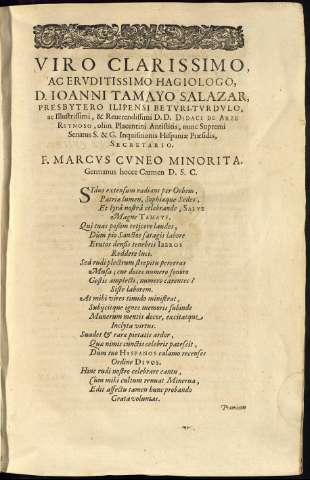 VIRO CLARISSIMO,
AC ERVDITISSIMO HAGIOLOGO,
D. IOANNI TAMAYO SALAZAR,
PRESBYTERO ILIPENSI BETVRI-TVRDVLO,
ac Illustrissimi, & Reuerendissimi D.D. DIDACI DE ARZE
REYNOSO, olim Placentini Antistitis, nunc Supremi
Senatus S. & G. Inquisitionis Hispaniæ Præsidis,
SECRETARIO.
F. MARCVS CVNEO MINORITA,
Germanus hocce Carmen D. S. C.
Sidus extensum radians per Orbem,
Patriæ lumen, Sophiæque Sedes,
Et lyrâ nostrâ celebrande, SALVE
Magne TAMAYE.
Qui tuas possim reticere laudes,
Dum pio Sanctos satagis labore
Erutos densis tenebris IBEROS
Reddere luci.
Sed rudi plectrum strepitu perorat
Musa; cur doctos numero sonoro
Gestis amplecti, numero carentes?
Siste laborem.
At mihi vires timido ministrat,
Subijcitque ignes memoris subinde
Munerum mentis decor, excitatque
Inclyta virtus.
Suadet & rara pietatis ardor,
Qua nimis cunctis celebris patescit,
Dum tuo HISPANOS calamo recenset
Ordine DIVOS.
Hunc rudi nostro celebrare cantu,
Cum mihi cultum renuat Minerva,
Edit affectu tamen hunc probando
Grata voluntas.